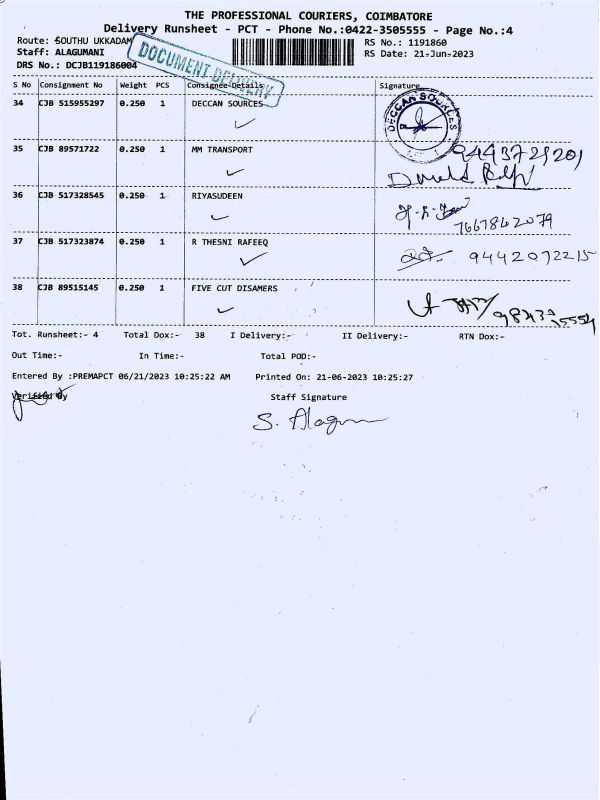 THE PROFESSIONAL COURIERS, COIMBATORE
Delivery Runsheet - PCT - Phone No.:0422-3505555 - Page No.:4
Route: SOUTHU UKKADAM RS No.: 1191860
Staff: ALAGUMANI RS Date: 21-Jun-2023
DRS No.: DCJB119186004
DOCUMENT DELIVERY
S No Consignment No Weight PCS Consignee Details Signature
34 CJB 515955297 0.250 1 DECCAN SOURCES
DECCAN SOURCES
35 CJB 89571722 0.250 1 MM TRANSPORT
36 CJB 517328545 0.250 1 RIYASUDEEN
7667862079
37 CJB 517323874 0.250 1 R THESNI RAFEEQ 9442072215
38 CJB 89515145 0.250 1 FIVE CUT DISAMERS
Tot. Runsheet:- 4 Total Dox:- 38 I Delivery:- II Delivery:- RTN Dox:-
Out Time:- In Time:- Total POD:-
Entered By :PREMAPCT 06/21/2023 10:25:22 AM Printed On: 21-06-2023 10:25:27
Verified By Staff Signature
S. Alagu